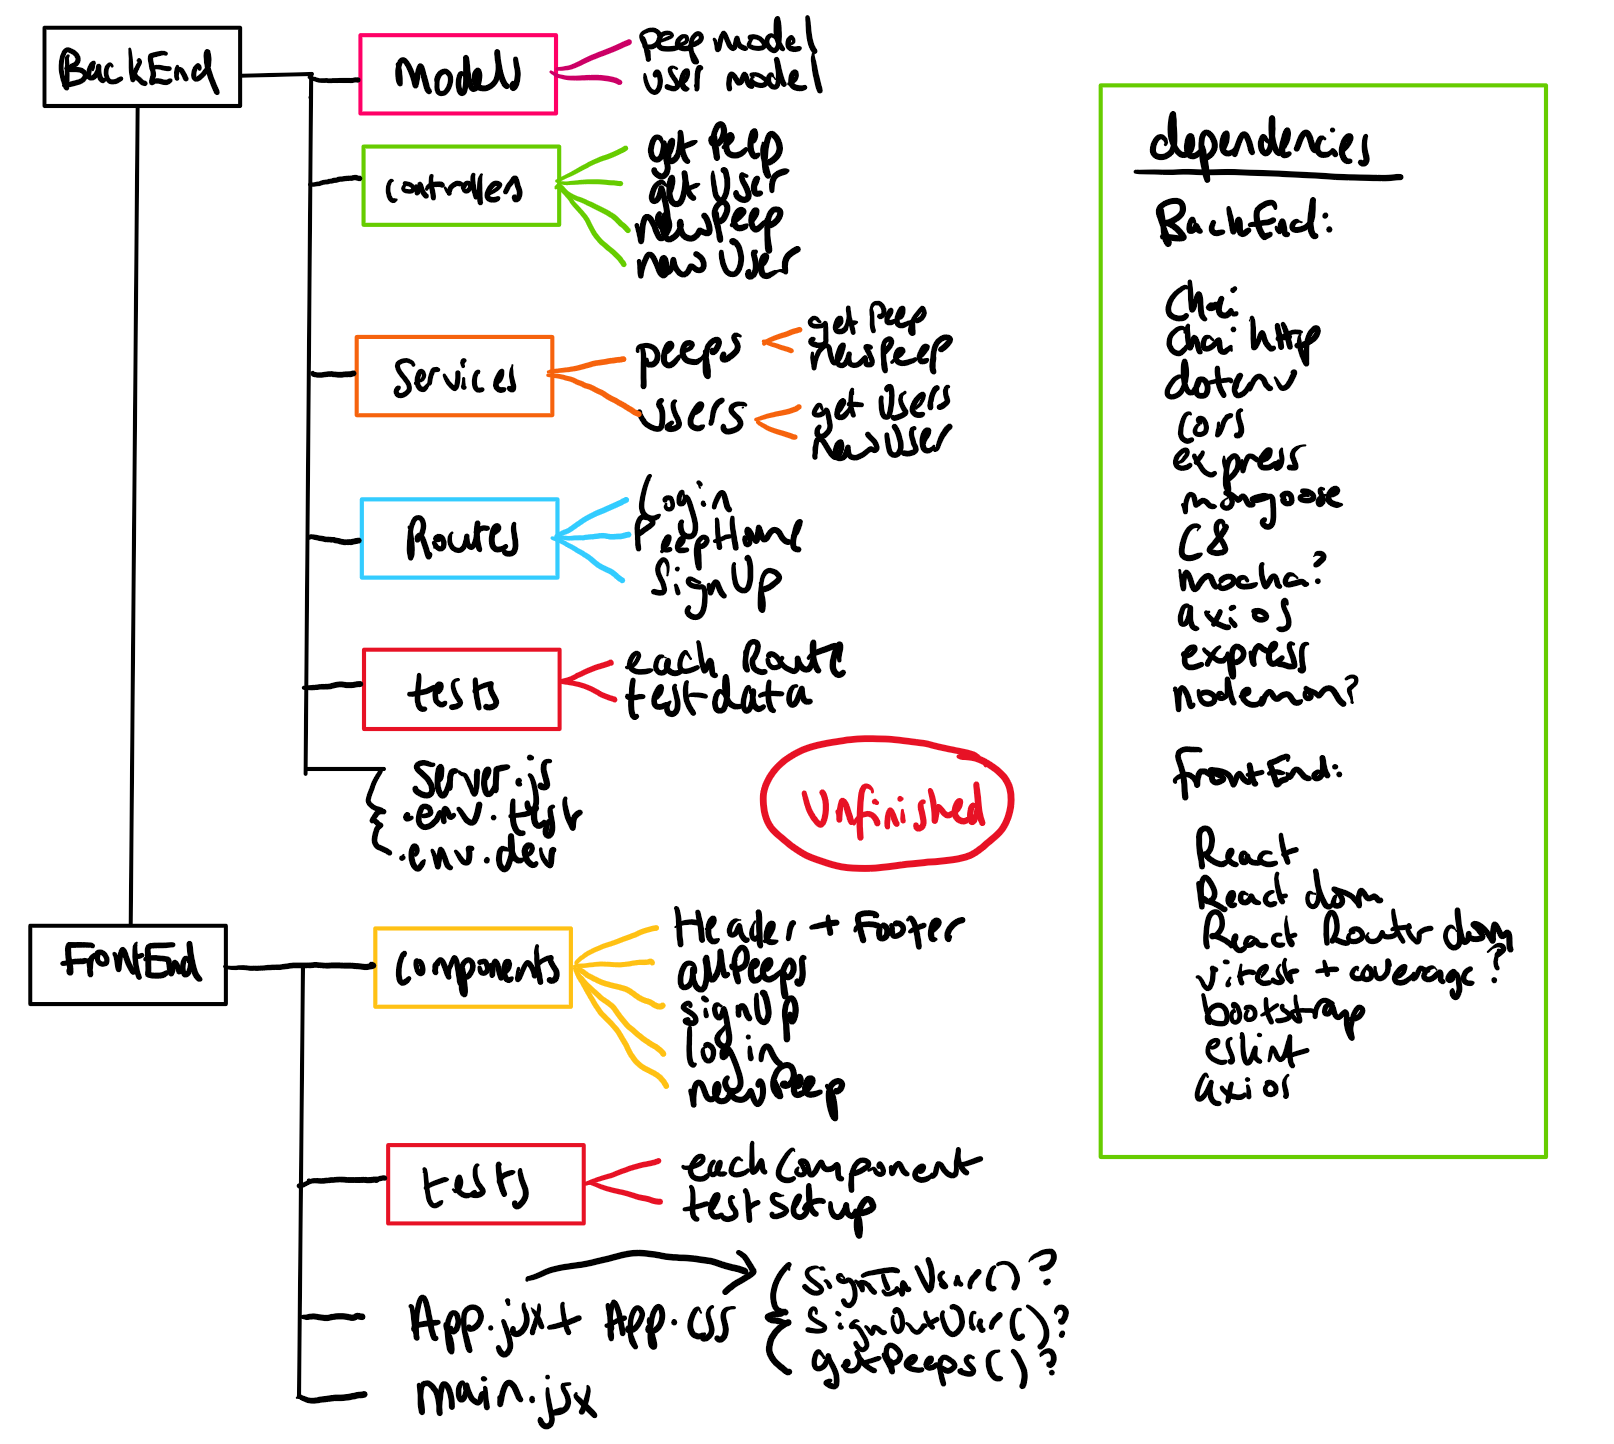 BackEnd
Models
peep model
user model
controllers
get Peep
get User
newPeep
new User
Services
peeps
get Peep
newPeep
users
get Users
New User
Routes
Login
PeepHome
SignUp
tests
each Route
test data
Server.js
.env.test
.env.dev
Unfinished
FrontEnd
Components
Header + Footer
allPeeps
signUp
login
newPeep
tests
each Component
test setup
App.jsx + App.css
SignInUser()?
SignOutUser()?
getPeeps()?
main.jsx
dependencies
BackEnd:
Chai
chai http
dotenv
cors
express
mongoose
C8
mocha?
axios
express
nodemon?
frontEnd:
React
React dom
React Router dom
vitest + coverage?
bootstrap
eslint
axios